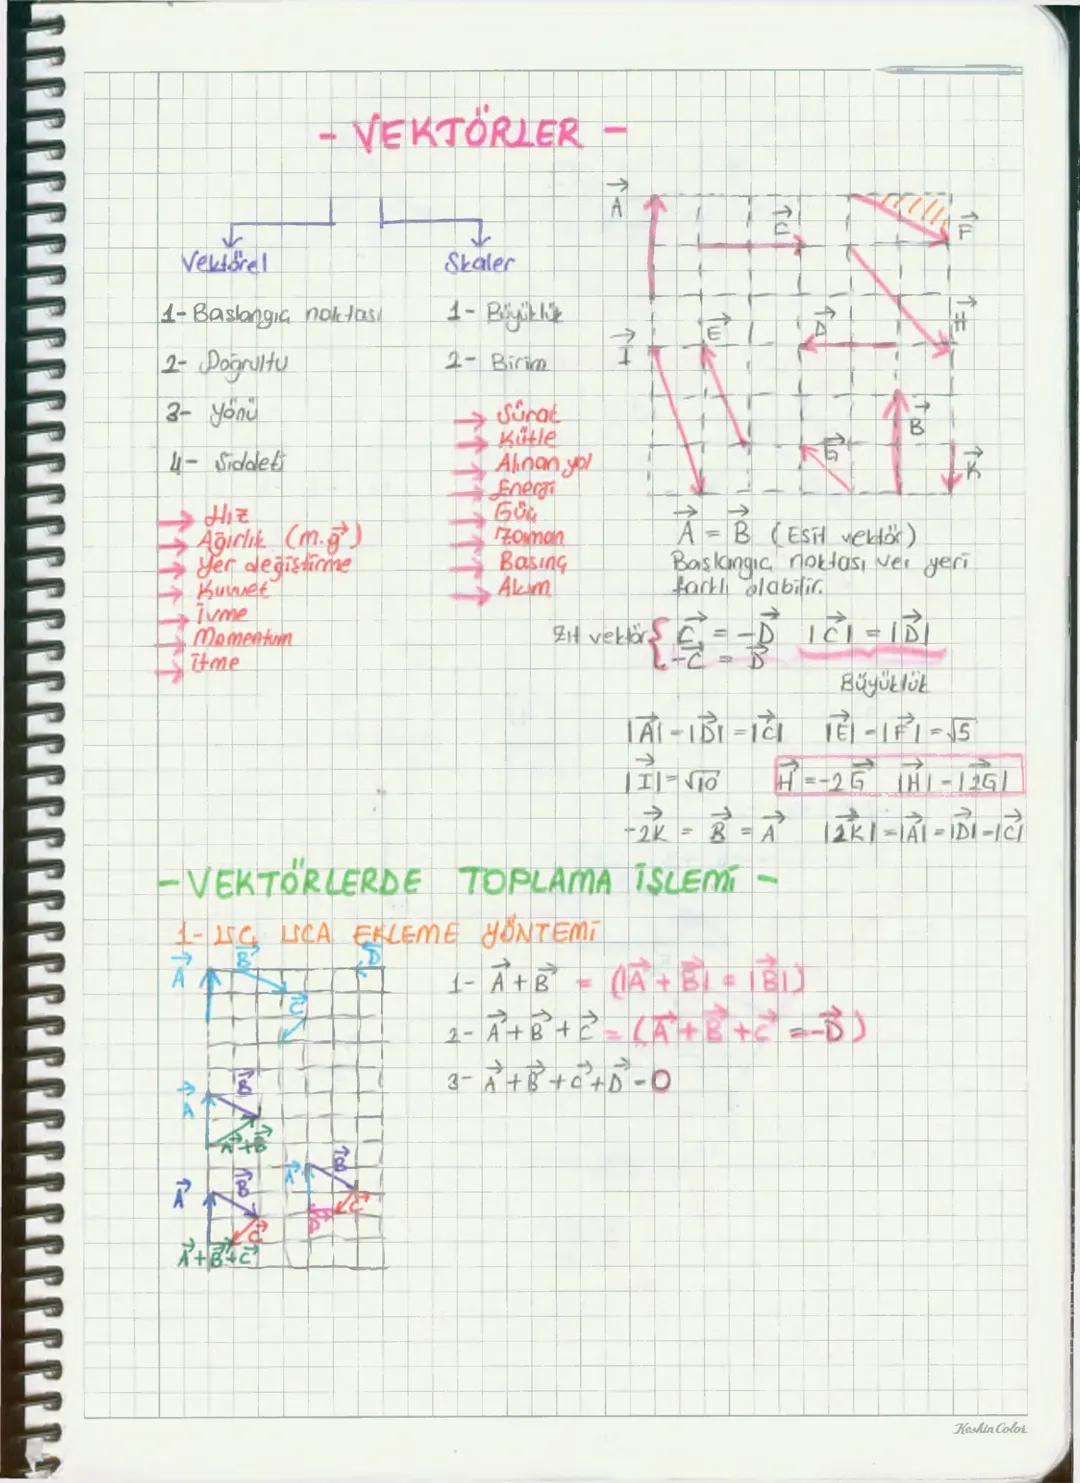 - VEKTÖRLER -
Vektörel
Skaler
1- Başlangıç noktası
2- Doğrultu
3- Yönü
4- Şiddeti
→ Hız
→ Ağırlık (m.g⃗)
→ Yer değiştirme
→ Kuvvet
→ İvme
→ Momentum
→ İtme
1- Büyüklük
2- Birim
→ Sürat
→ Kütle
→ Alınan yol
→ Enerji
→ Güç
→ Zaman
→ Basınç
→ Akım
A⃗
C⃗
F⃗
I⃗
E⃗
D⃗
H⃗
B⃗
G⃗
K⃗
A⃗ = B⃗ (Eşit vektör)
Başlangıç noktası ve yeri
farklı olabilir.
Zıt vektör { C⃗ = -D⃗ |C⃗| = |D⃗|
-C⃗ = D⃗
Büyüklük
|A⃗| = |D⃗| = |C⃗| |E⃗| = |F⃗| = √5
|I⃗| = √10 H⃗ = -2G⃗ |H⃗| = |2G⃗|
-2K⃗ = B⃗ = A⃗ |2K⃗| = |A⃗| = |D⃗| = |C⃗|
- VEKTÖRLERDE TOPLAMA İŞLEMİ -
1- UÇ UCA EKLEME YÖNTEMİ
A⃗
B⃗
C⃗
D⃗
1- A⃗ + B⃗ = (|A⃗ + B⃗| = |B⃗|)
2- A⃗ + B⃗ + C⃗ = (A⃗ + B⃗ + C⃗ = -D⃗)
3- A⃗ + B⃗ + C⃗ + D⃗ = 0
A⃗
B⃗
A⃗ + B⃗
A⃗
B⃗
C⃗
A⃗ + B⃗ + C⃗
A⃗
B⃗
C⃗
D⃗
Keskin Color